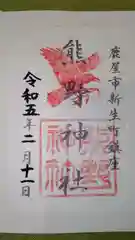 鹿屋市新生町鎮座
熊野神社
令和五年二月十一日